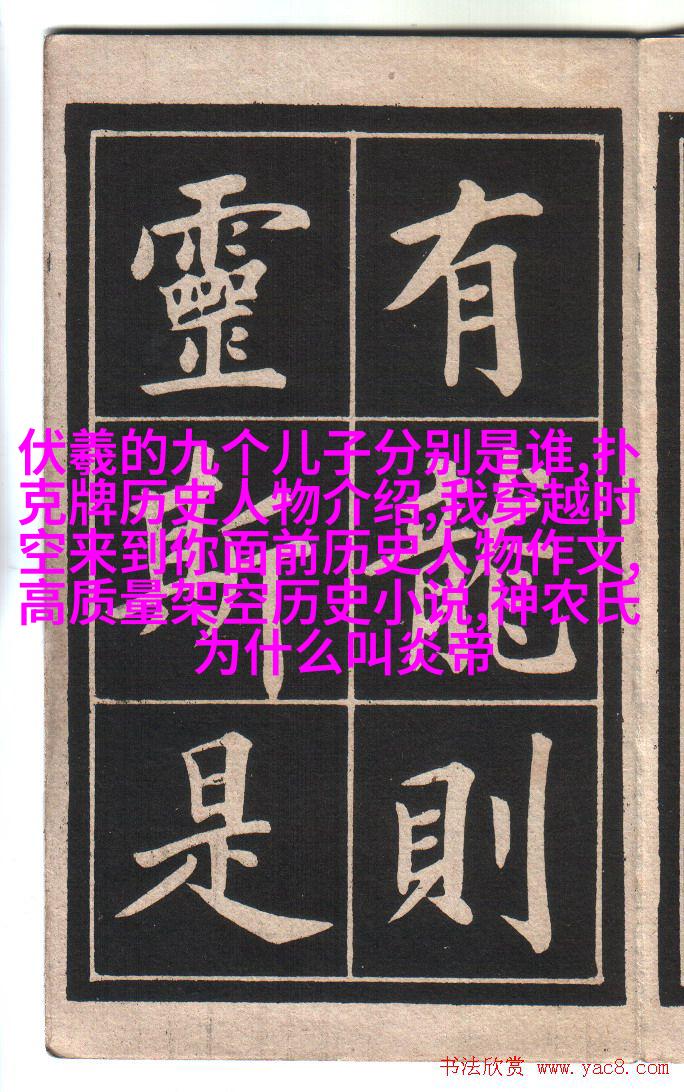 有龍則
靈斯是
伏羲的九个儿子分别是谁,扑
克牌历史人物介绍,我穿越时
空来到你面前历史人物作文,
高质量架空历史小说,神农氏
为什么叫炎帝
书法欣赏 www.yac8.com